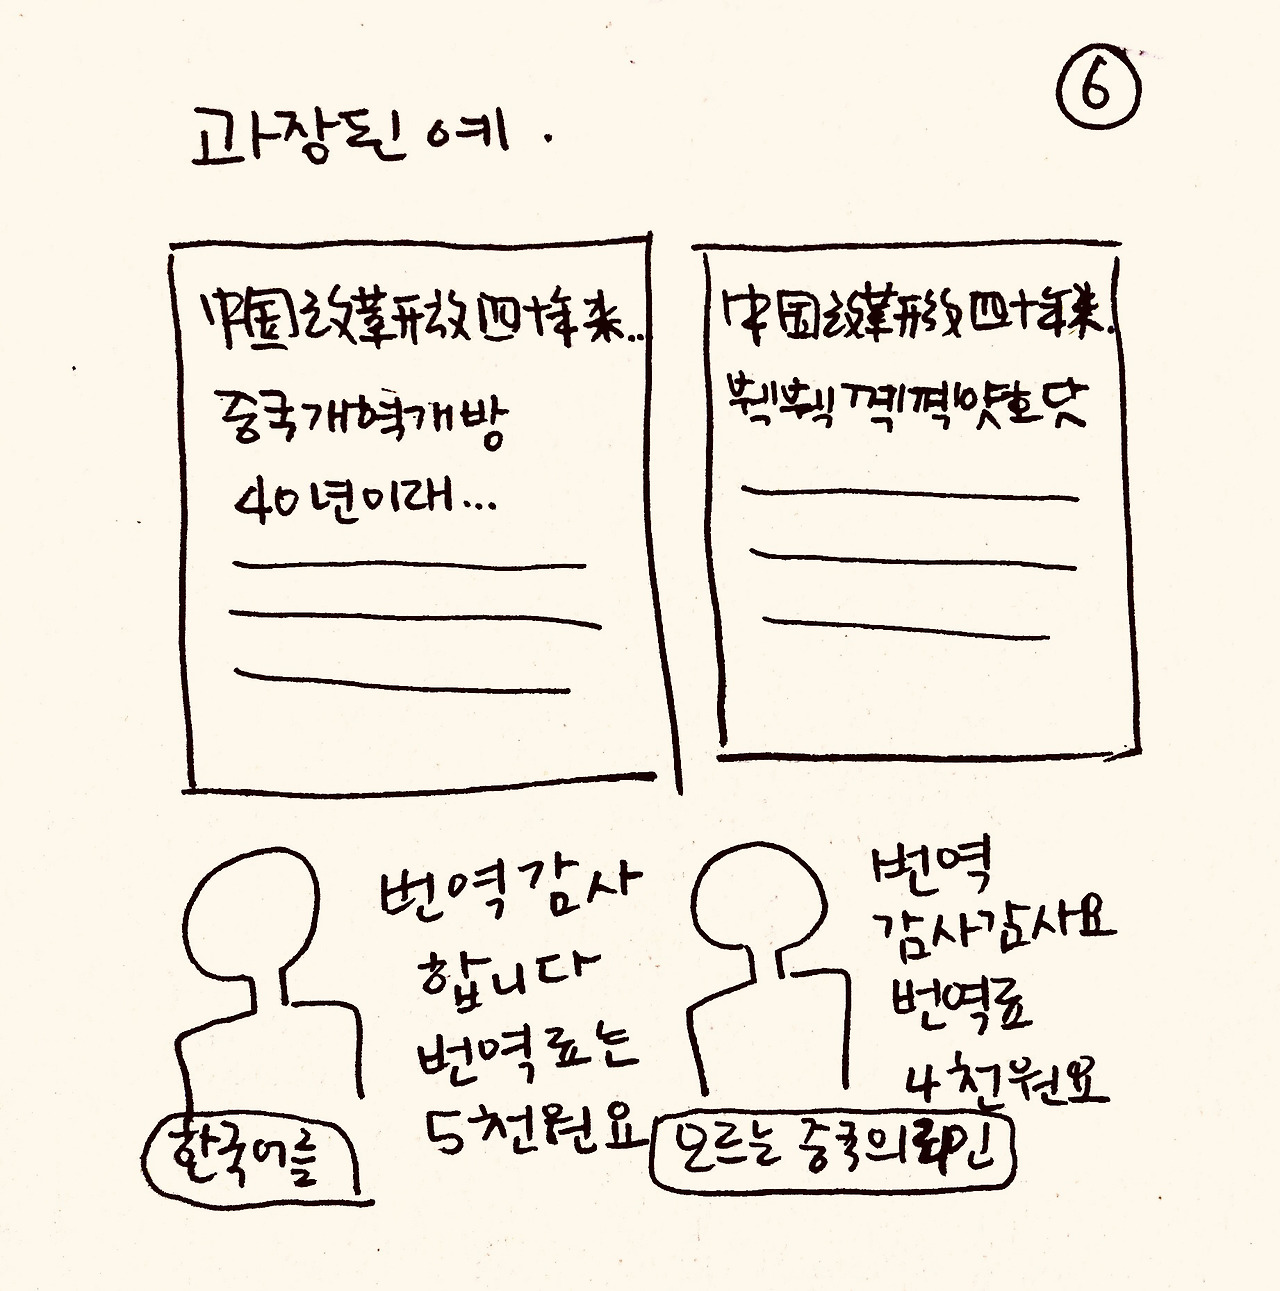 6
과장된 예.
中国改革形放四十年来...
중국개혁개방
40년이래...
中国改革形放四十年来.
뷁뷁꼑꼑얏호닷
번역감사
합니다
번역료는
5천원요
번역
감사감사요
번역료
4천원요
한국어를
모르는 중국의뢰인